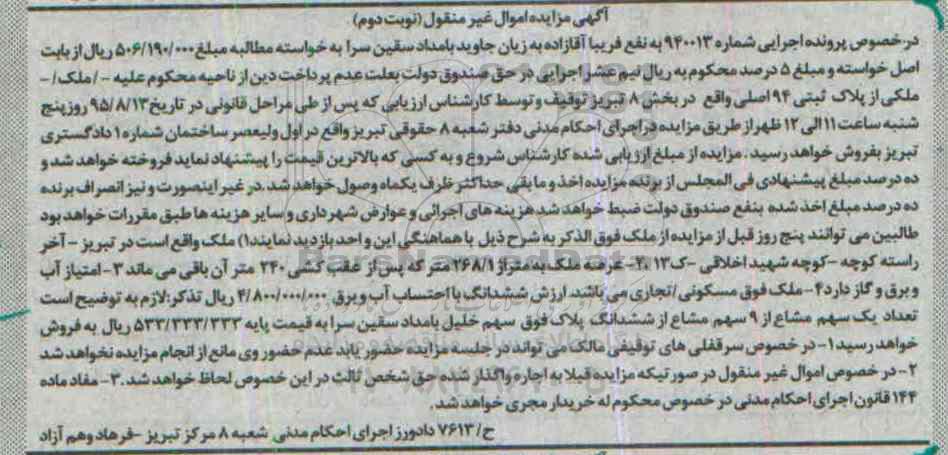 آگهی مزایده اموال غیر منقول (نوبت دوم)
درخصوص پرونده اجرایی شماره ۹۴۰۰۱۳ به نفع فریبا آقازاده به زیان جاوید بامداد سقین سرا به خواسته مطالبه مبلغ ۵۰۶/۱۹۰/۰۰۰ ریال از بابت
اصل خواسته و مبلغ ۵ درصد محکوم به ریال نیم عشر اجرایی در حق صندوق دولت بعلت عدم پرداخت دین از ناحیه محکوم علیه -/ملک/-
ملکی از پلاک ثبتی ۹۴ اصلی واقع در بخش ۸ تبریز توقیف و توسط کارشناس ارزیابی که پس از طی مراحل قانونی در تاریخ ۹۵/۸/۱۳ روز پنج
شنبه ساعت ۱۱ الی ۱۲ ظهر از طریق مزایده در اجرای احکام مدنی دفتر شعبه ۸ حقوقی تبریز واقع در اول ولیعصر ساختمان شماره ۱ دادگستری
تبریز بفروش خواهد رسید. مزایده از مبلغ ارزیابی شده کارشناس شروع و به کسی که بالاترین قیمت را پیشنهاد نماید فروخته خواهد شد و
ده درصد مبلغ پیشنهادی فی المجلس از برنده مزایده اخذ و مابقی حداکثر ظرف یکماه وصول خواهد شد. در غیر اینصورت و نیز انصراف برنده
ده درصد مبلغ اخذ شده بنفع صندوق دولت ضبط خواهد شد هزینه های اجرائی و عوارض شهرداری و سایر هزینه ها طبق مقررات خواهد بود
طالبین می توانند پنج روز قبل از مزایده از ملک فوق الذکر به شرح ذیل با هماهنگی این واحد بازدید نمایند ۱) ملک واقع است در تبریز - آخر
راسته کوچه - کوچه شهید اخلاقی - ک۱۳ ۲- عرصه ملک به متراژ ۲۶۸/۱ متر که پس از عقب کشی ۲۴۰ متر آن باقی می ماند ۳- امتیاز آب
و برق و گاز دارد ۴- ملک فوق مسکونی/تجاری می باشد. ارزش ششدانگ با احتساب آب و برق ۴/۸۰۰/۰۰۰/۰۰۰ ریال تذکر: لازم به توضیح است
تعداد یک سهم مشاع از ۹ سهم مشاع از ششدانگ پلاک فوق سهم خلیل بامداد سقین سرا به قیمت پایه ۵۳۳/۳۳۳/۳۳۳ ریال به فروش
خواهد رسید ۱- در خصوص سرقفلی های توقیفی مالک می تواند در جلسه مزایده حضور یابد عدم حضور وی مانع از انجام مزایده نخواهد شد
۲- در خصوص اموال غیر منقول در صورتیکه مزایده قبلا به اجاره واگذار شده حق شخص ثالث در این خصوص لحاظ خواهد شد. ۳- مفاد ماده
۱۴۴ قانون اجرای احکام مدنی در خصوص محکوم له خریدار مجری خواهد شد.
ح/۷۶۱۳ دادورز اجرای احکام مدنی شعبه ۸ مرکز تبریز - فرهاد وهم آزاد